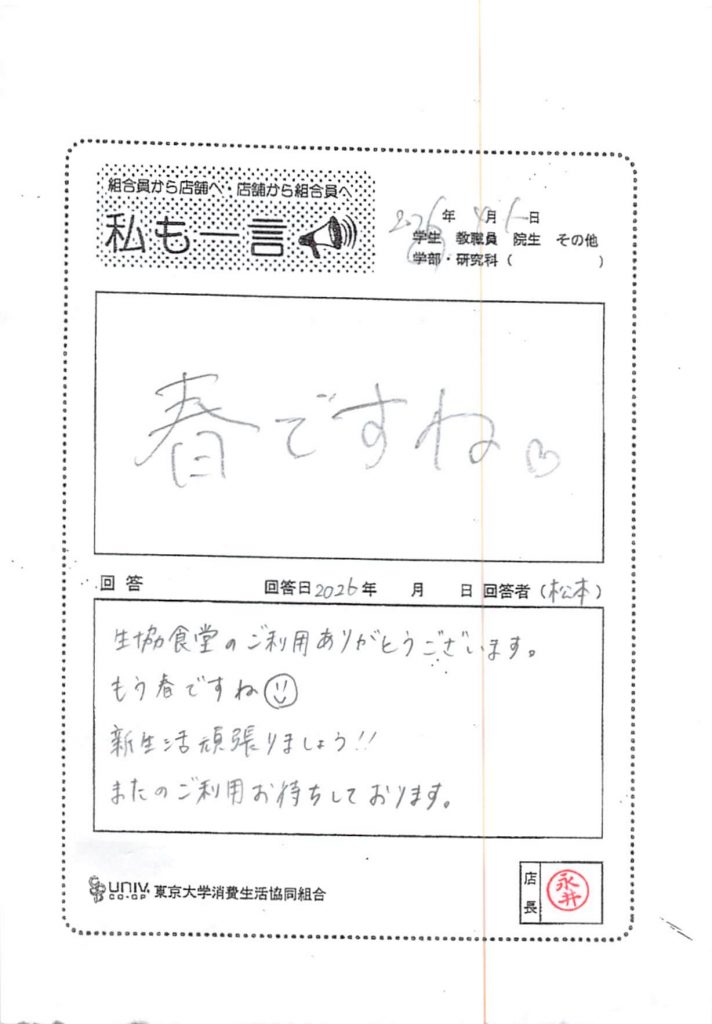 組合員から店舗へ・店舗から組合員へ
私も一言
2026年4月6日
学生 教職員 院生 その他
学部・研究科（　　　）
春ですね♡
回答 回答日2026年　月　日 回答者（松本）
生協食堂のご利用ありがとうございます。
もう春ですね
新生活頑張りましょう!!
またのご利用お待ちしております。
UNIV. CO-OP 東京大学消費生活協同組合
店長 永井